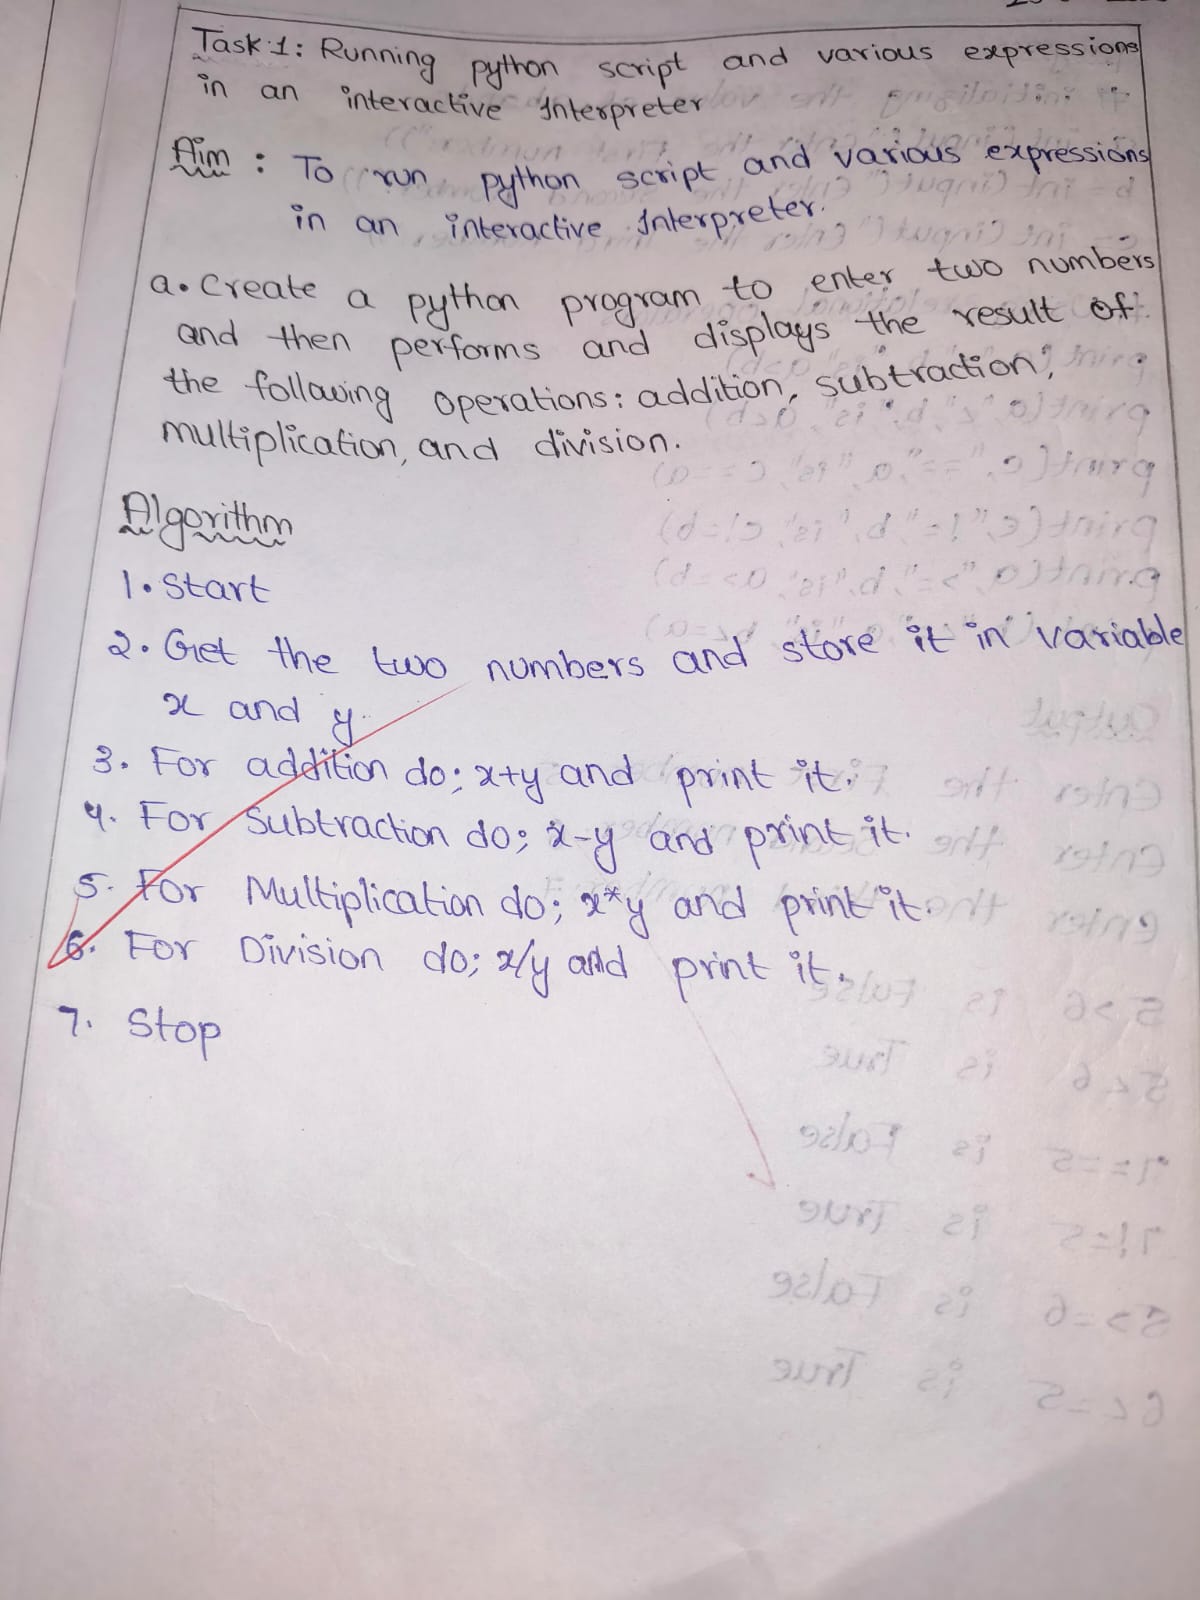 Task:1: Running python script and various expressions
in an interactive Interpreter
Aim : To run python script and various expressions
in an interactive Interpreter.
a. Create a python program to enter two numbers
and then performs and displays the result of
the following operations: addition, subtraction,
multiplication, and division.
Algorithm
1. Start
2. Get the two numbers and store it in variable
x and y.
3. For addition do; x+y and print it.
4. For Subtraction do; x-y and print it.
5. For Multiplication do; x*y and print it.
6. For Division do; x/y and print it.
7. Stop